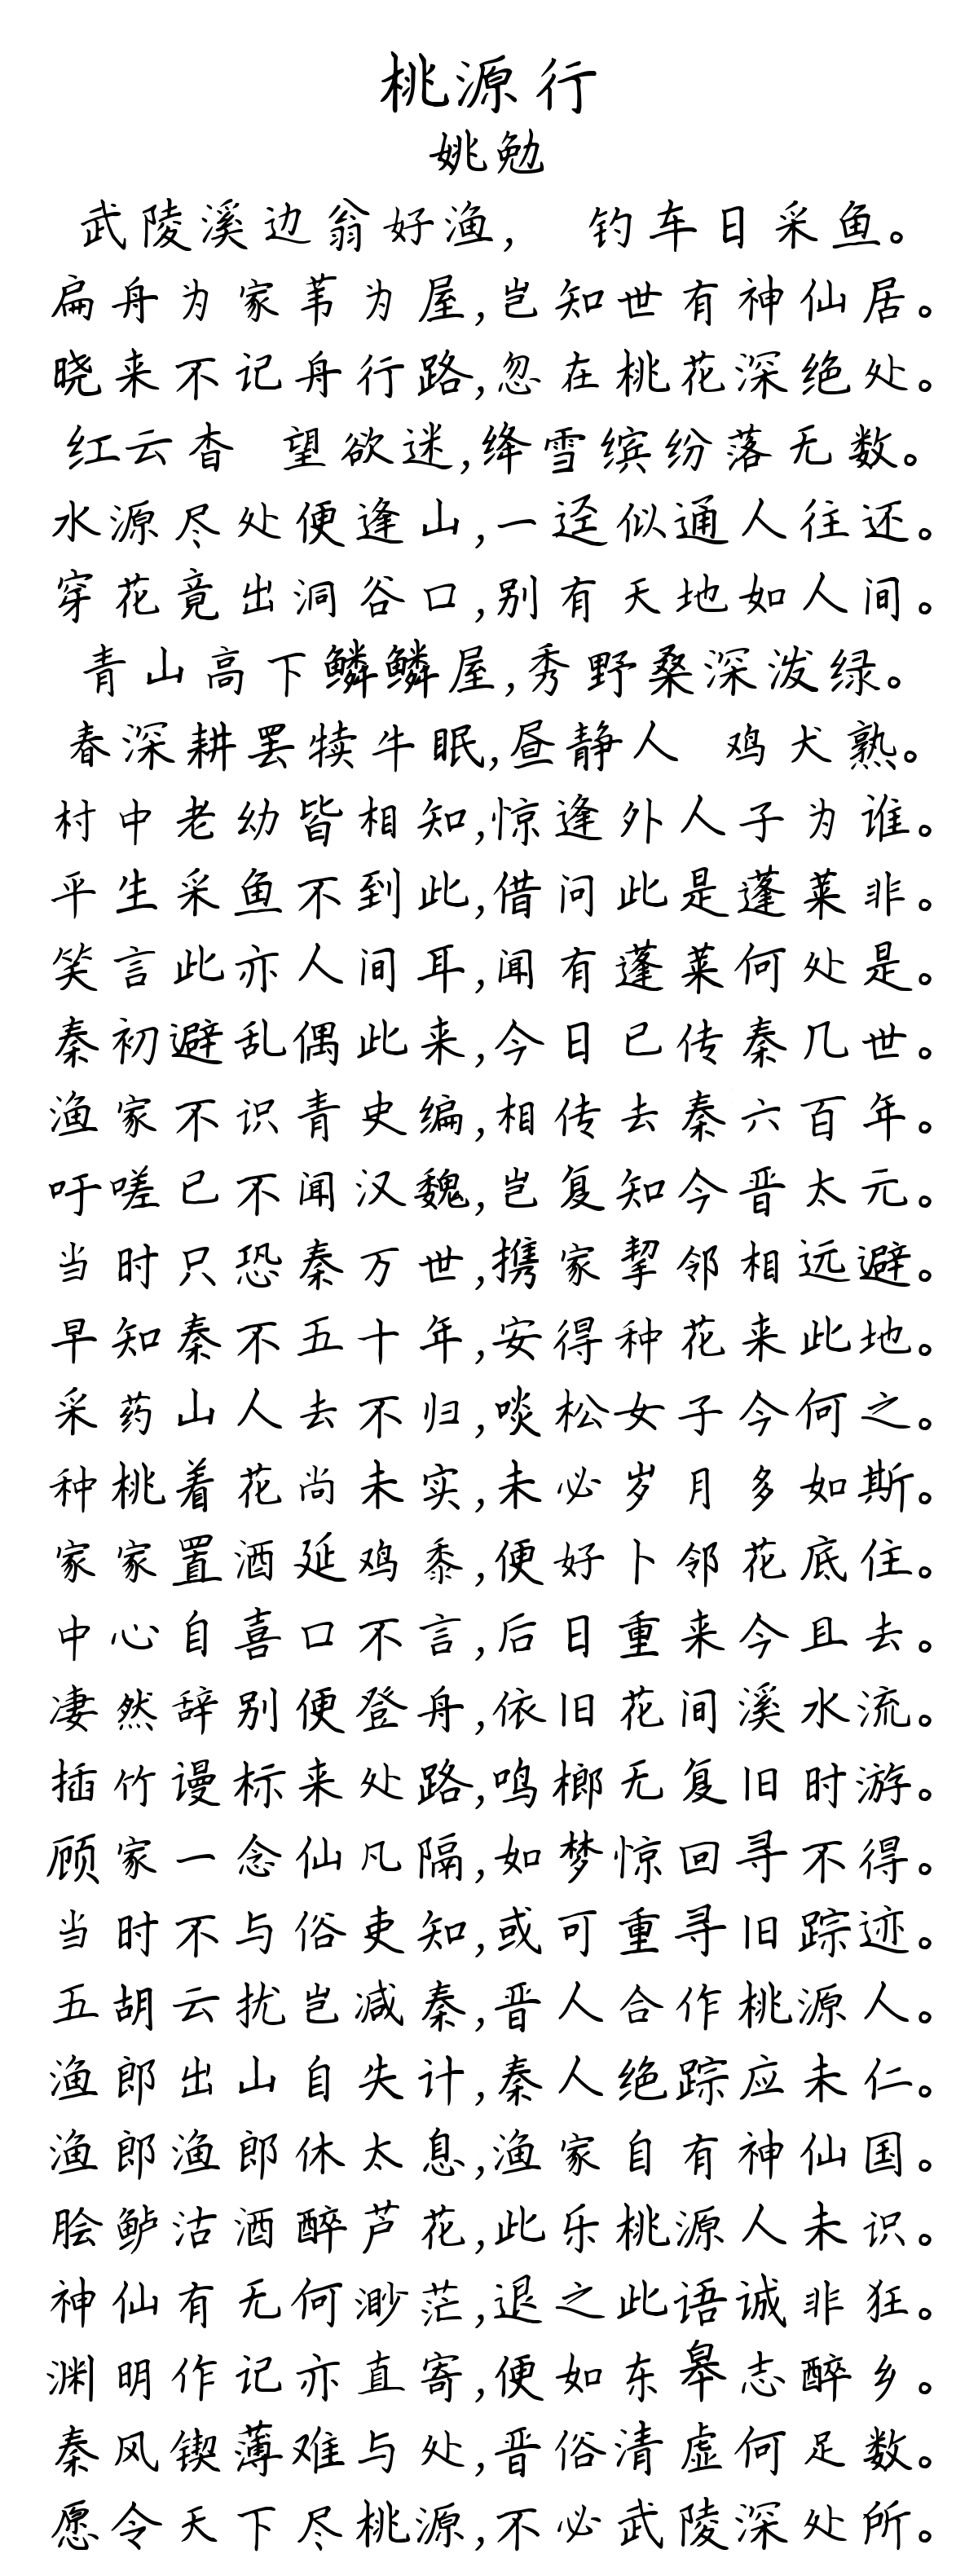 桃源行
姚勉
武陵溪边翁好渔， 钓车日采鱼。
扁舟为家苇为屋，岂知世有神仙居。
晓来不记舟行路，忽在桃花深绝处。
红云杳 望欲迷，绛雪缤纷落无数。
水源尽处便逢山，一迳似通人往还。
穿花竟出洞谷口，别有天地如人间。
青山高下鳞鳞屋，秀野桑深泼绿。
春深耕罢犊牛眠，昼静人 鸡犬熟。
村中老幼皆相知，惊逢外人子为谁。
平生采鱼不到此，借问此是蓬莱非。
笑言此亦人间耳，闻有蓬莱何处是。
秦初避乱偶此来，今日已传秦几世。
渔家不识青史编，相传去秦六百年。
吁嗟已不闻汉魏，岂复知今晋太元。
当时只恐秦万世，携家挈邻相远避。
早知秦不五十年，安得种花来此地。
采药山人去不归，啖松女子今何之。
种桃着花尚未实，未必岁月多如斯。
家家置酒延鸡黍，便好卜邻花底住。
中心自喜口不言，后日重来今且去。
凄然辞别便登舟，依旧花间溪水流。
插竹谩标来处路，鸣榔无复旧时游。
顾家一念仙凡隔，如梦惊回寻不得。
当时不与俗吏知，或可重寻旧踪迹。
五胡云扰岂减秦，晋人合作桃源人。
渔郎出山自失计，秦人绝踪应未仁。
渔郎渔郎休太息，渔家自有神仙国。
脍鲈沽酒醉芦花，此乐桃源人未识。
神仙有无何渺茫，退之此语诚非狂。
渊明作记亦直寄，便如东皋志醉乡。
秦风锲薄难与处，晋俗清虚何足数。
愿令天下尽桃源，不必武陵深处所。